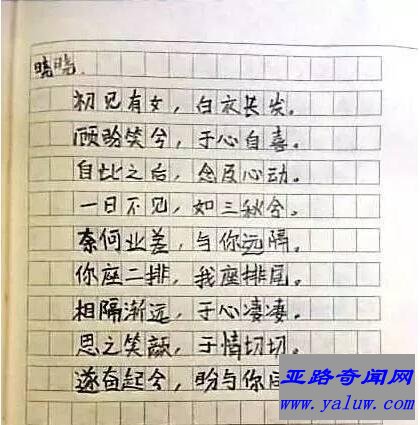 晓晓.
初见有女，白衣长发。
顾盼笑兮，于心自喜。
自此之后，念及心动。
一日不见，如三秋兮。
奈何业差，与你远隔。
你座二排，我座排尾。
相隔渐远，于心凄凄。
思之笑颜，于情切切。
遂奋起兮，盼与你
亚路奇闻网
www.yaluw.com